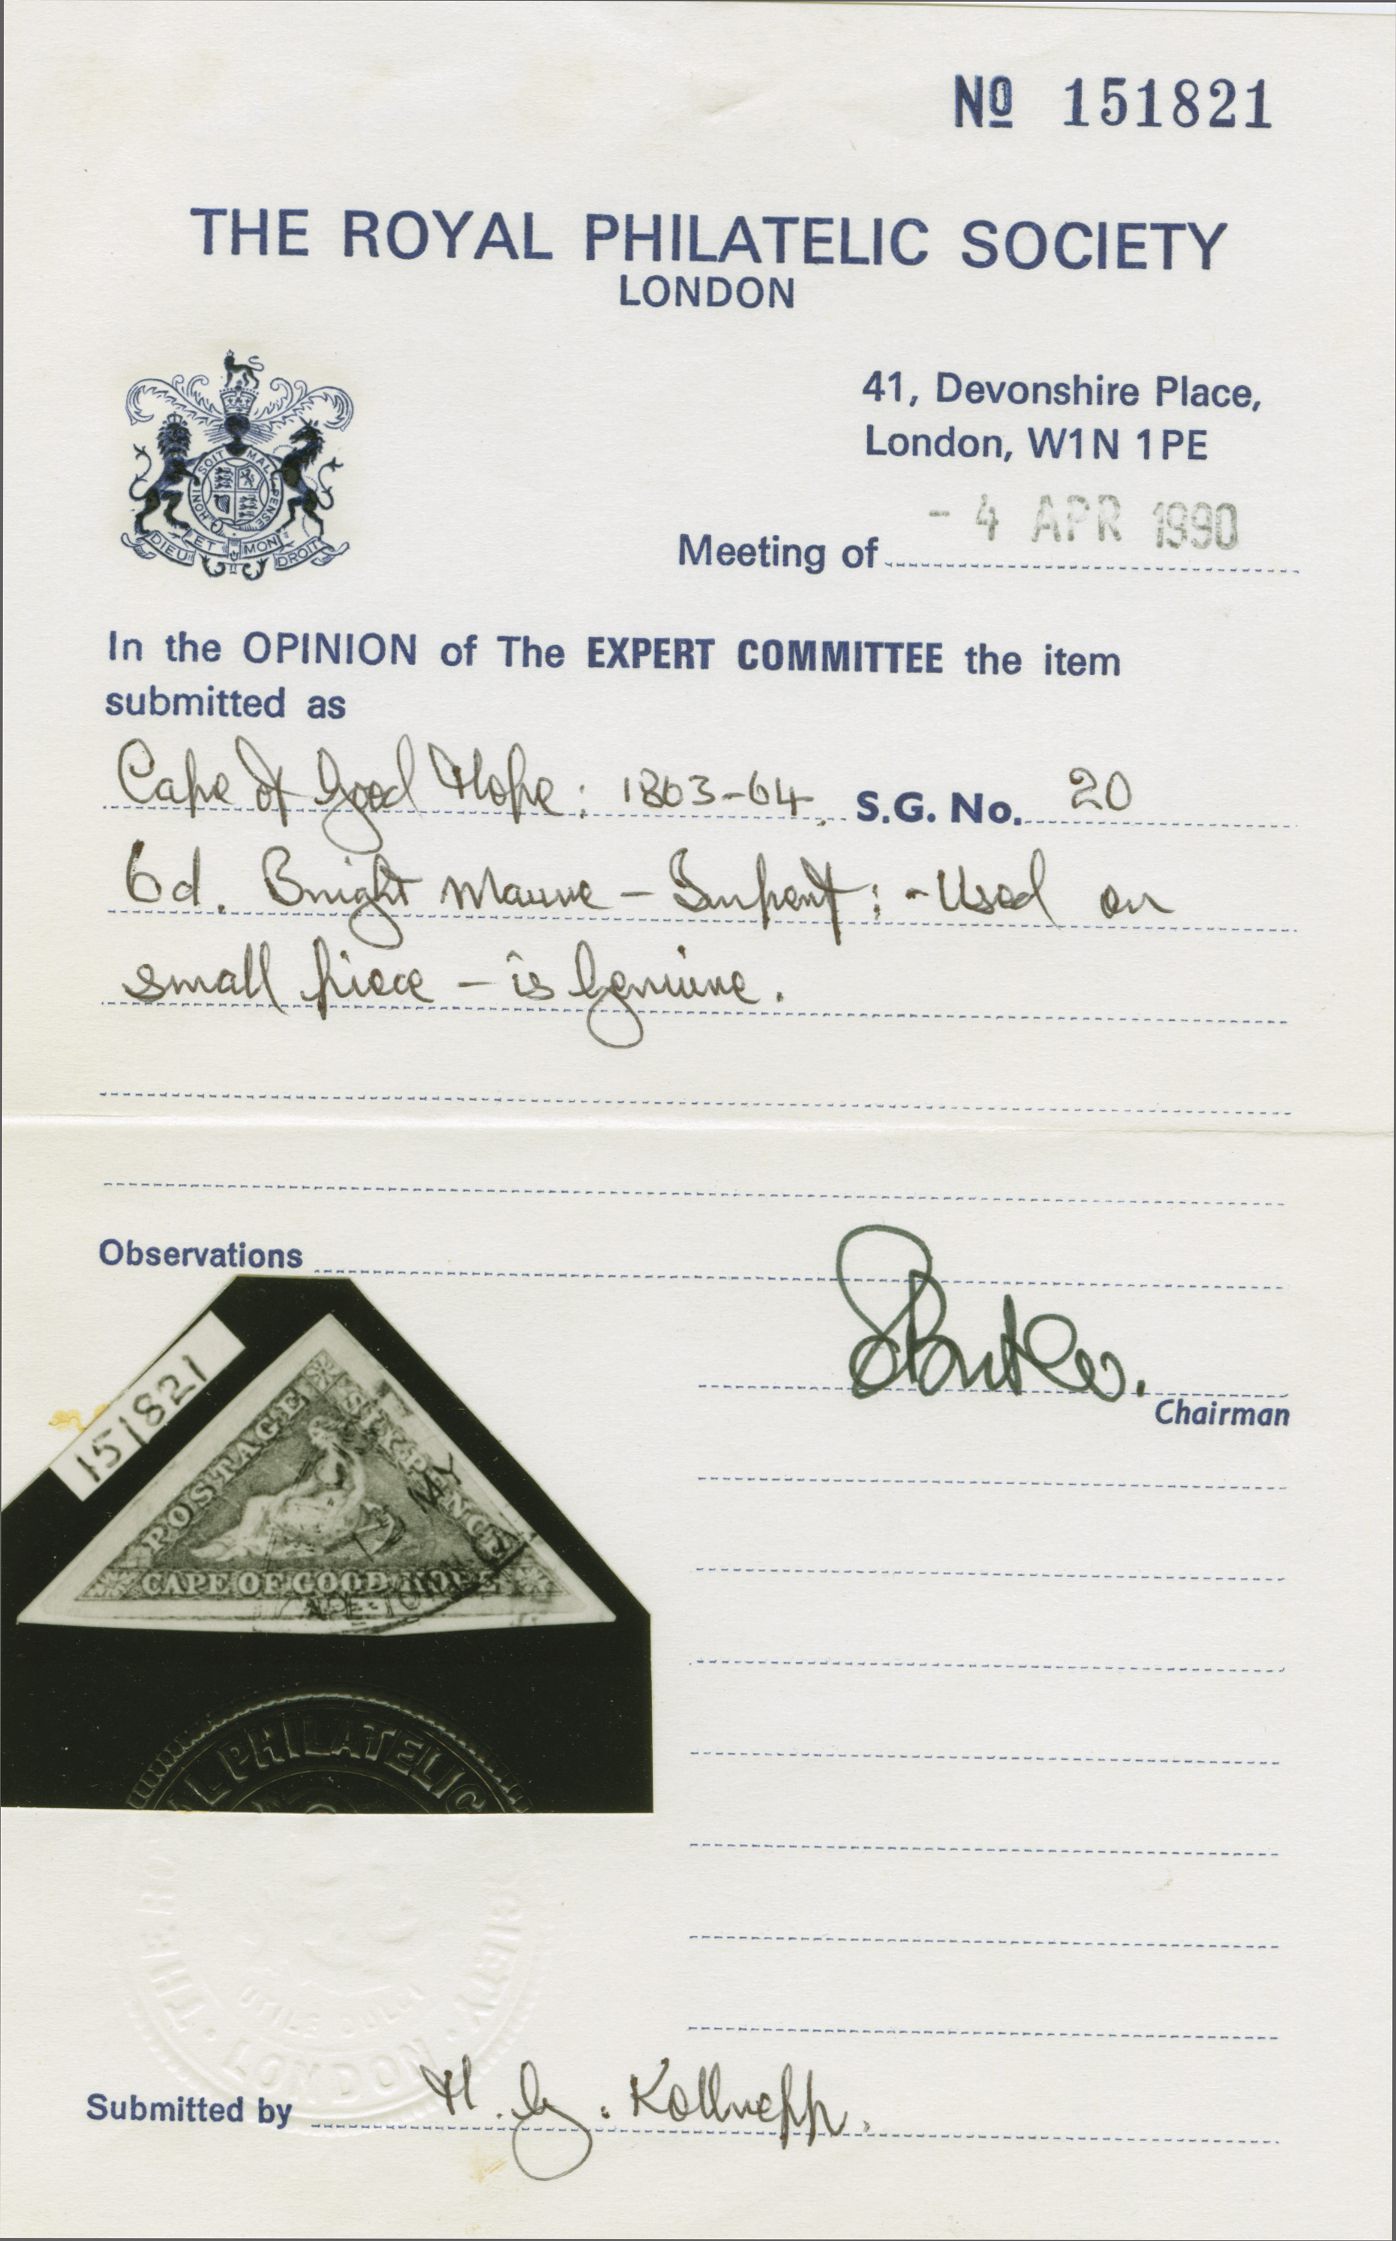 No 151821
THE ROYAL PHILATELIC SOCIETY
LONDON
41, Devonshire Place,
London, W1N 1PE
HONI SOIT MAL PENSE
DIEU ET MON DROIT
Meeting of - 4 APR 1990
In the OPINION of The EXPERT COMMITTEE the item
submitted as
Cape of Good Hope: 1863-64. S.G. No. 20
6d. Bright Mauve - Imperf: - Used on
small piece - is Genuine.
Observations
Chairman
151821
POSTAGE
SIXPENCE
CAPE OF GOOD HOPE
THE ROYAL PHILATELIC SOCIETY
UTILE DULCI
LONDON
Submitted by H. G.